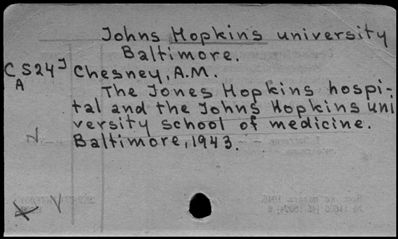 Johns Hopkins university
Baltimore.
CS24J Chesney, A.M.
A
The Jones Hopkins hospi-
tal and the Johns Hopkins uni
versity school of medicine.
Baltimore, 1943.